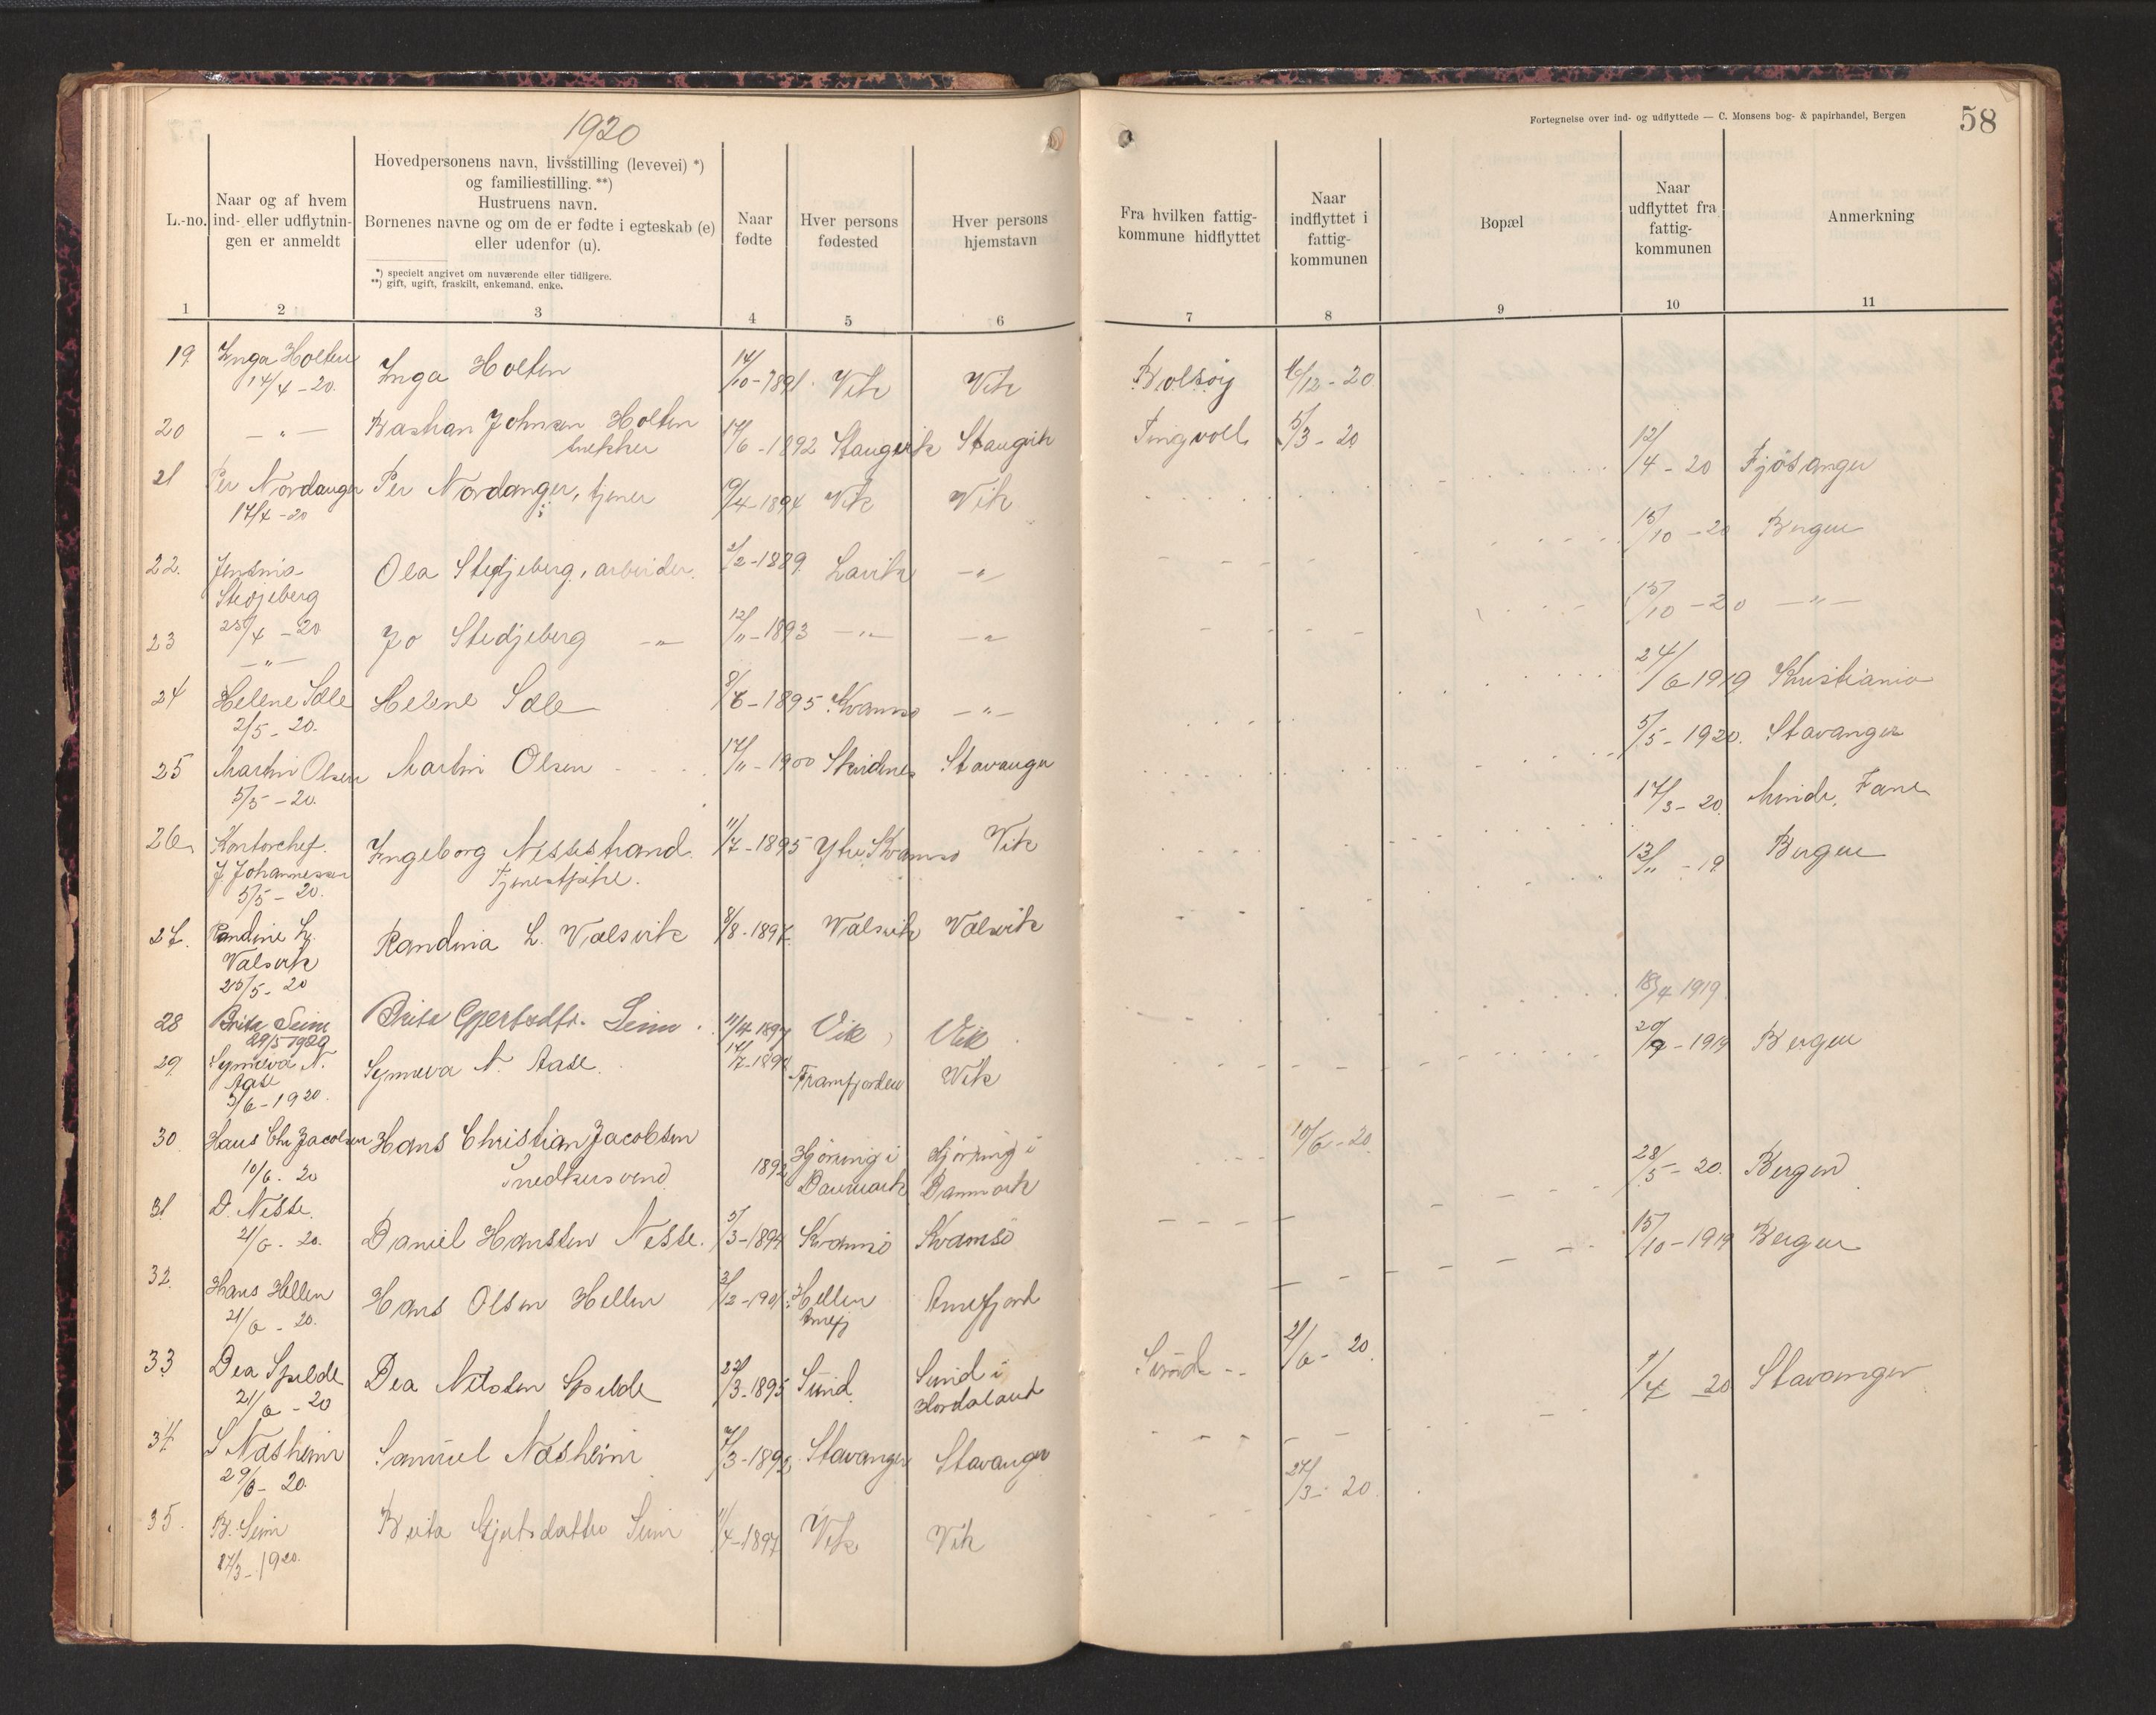 1920
Fortegnelse over ind- og udflyttede — C. Monsens bog- & papirhandel, Bergen
58
L.-no.
Naar og af hvem
ind- eller udflytnin-
gen er anmeldt
Hovedpersonens navn, livsstilling (levevei) *)
og familiestilling. **)
Hustruens navn.
Børnenes navne og om de er fødte i egteskab (e)
eller udenfor (u).
*) specielt angivet om nuværende eller tidligere.
**) gift, ugift, fraskilt, enkemand, enke.
Naar
fødte
Hver persons
fødested
Hver persons
hjemstavn
Fra hvilken fattig-
kommune hidflyttet
Naar
indflyttet i
fattig-
kommunen
Bopæl
Naar
udflyttet fra
fattig-
kommunen
Anmerkning
1 2 3 4 5 6 7 8 9 10 11
19 Inga Holten Inga Holten 14/10-1891 Vik Vik Bolsöy 16/12-20
14/4-20.
20 —"— Bastian Johnsen Holten 17/6-1892 Staugvik Staugvik Tingvoll 5/3-20
21 Per Nordanger Per Nordanger, tjener 9/4-1894 Vik Vik 12/4-20 Fjösanger
17/4-20
22. Jensina Ola Stedjeberg, arbeider. 2/2-1889 Lavik —"— 15/10-20 Bergen
Stedjeberg
25/4-20
23 —"— Jo Stedjeberg —"— 12/11-1893 —"— —"— 15/10-20 —"—
24 Helene Sæle Helene Sæle 8/6-1895 Kvamsø —"— 24/6 1919 Kristiania
2/5-20.
25 Martin Olsen Martin Olsen 17/11-1900 Skudnes Stavanger 5/5-1920. Stavanger
5/5-20.
26 Kontorchef Ingeborg Nissestrand 11/7-1895 Ytre Kvamsø Vik 17/3-20 Minde, Fane
J Johannessen Tjenestpike.
5/5-20.
27. Randine L. Randina L. Valsvik 8/8-1897 Valsvik Valsvik 13/11-19 Bergen
Valsvik
25/5-20
28 Brita Seim Brita Gjertsdtr. Seim 11/4 1897 Vik Vik 18/4 1919
29/5 1920
29 Synneva N. Synneva N. Aase. Framfjorden Vik 20/9-1919 Bergen
Aase
5/6-1920.
30 Hans Chr Jacobsen Hans Christian Jacobsen 1892 Hjørring i Hjørring i 10/6-20
10/6-20 Snedkersvend Danmark Danmark
31 D. Nesse. Daniel Hansen Nesse. 5/3-1894 Kvamsö Kvamsö 28/5-20. Bergen
21/6-20.
32. Hans Hellen Hans Olsen Hellen Hellen Arnefjord 15/10-1919 Bergen
21/6-20. Arnefj
33 Dea Spilde Dea Nilsdtr Spilde 22/3-1895 Sund Sund i Sund 21/6-20.
21/6-20 Hordaland
34 S Næsheim Samuel Næsheim Stavanger Stavanger 1/4-20 Stavanger
29/6-20.
35. B. Seim Brita Gjertsdatter Seim 11/4-1897 Vik Vik 27/3-20
27/3-1920.